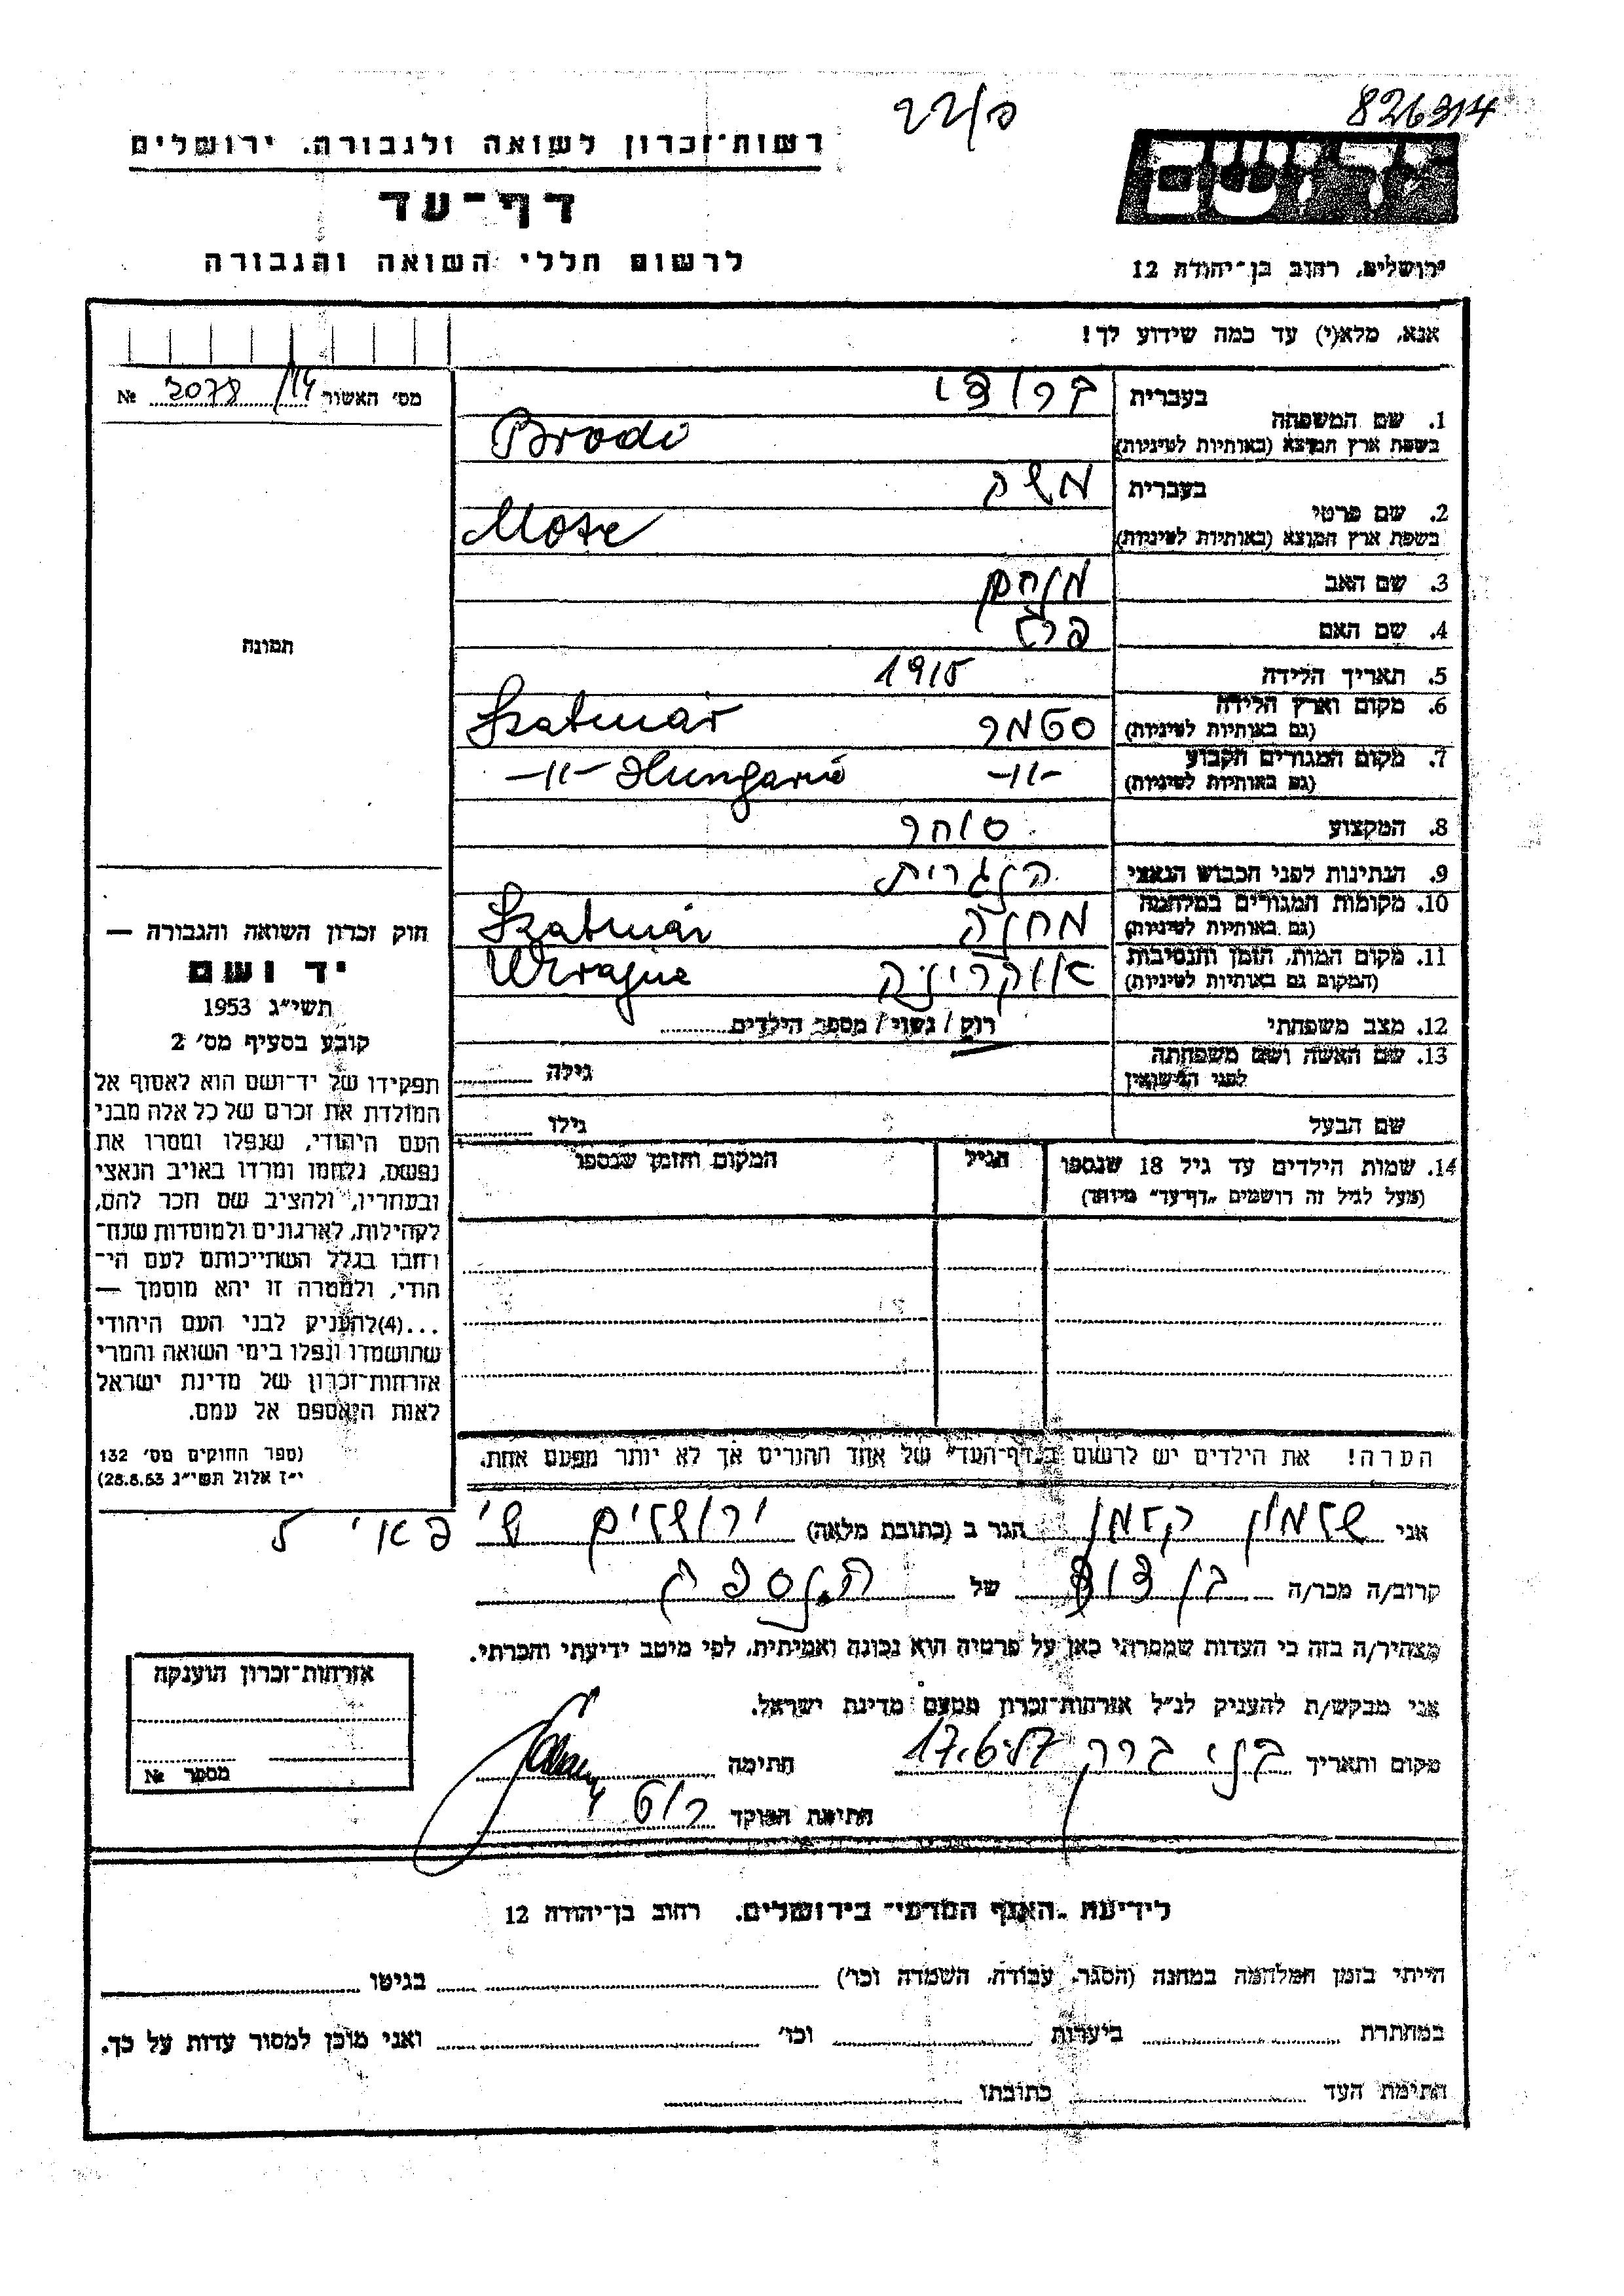 826314
22/פ
יד ושם
רשות־זכרון לשואה ולגבורה. ירושלים
דף־עד
לרשום חללי השואה והגבורה
ירושלים, רחוב בן־יהודה 12
אנא, מלא(י) עד כמה שידוע לך!
מס׳ האשור 3078/14 №
בעברית ברודי
1. שם המשפחה
בשפת ארץ המוצא (באותיות לטיניות) Brodi
בעברית משה
2. שם פרטי
בשפת ארץ המוצא (באותיות לטיניות) Mose
3. שם האב מנחם
4. שם האם פרל
5. תאריך הלידה 1915
6. מקום וארץ הלידה
(גם באותיות לטיניות) סטמר Szatmár
7. מקום המגורים הקבוע
(גם באותיות לטיניות) -"- -"- Hungarie
8. המקצוע סוחר
9. הנתינות לפני הכבוש הנאצי הנגרית
10. מקומות המגורים במלחמה
(גם באותיות לטיניות) מחנה Szatmár
11. מקום המות, הזמן והנסיבות
(המקום גם באותיות לטיניות) אוקרינה Ukrajne
12. מצב משפחתי רווק / נשוי / מספר הילדים
13. שם האשה ושם משפחתה
לפני הנישואין גילה
שם הבעל גילו
14. שמות הילדים עד גיל 18 שנספו הגיל המקום והזמן שנספו
(מעל לגיל זה רושמים „דף־עד״ מיוחד)
תמונה
חוק זכרון השואה והגבורה —
יד ושם
תשי״ג 1953
קובע בסעיף מס׳ 2
תפקידו של יד־ושם הוא לאסוף אל
המולדת את זכרם של כל אלה מבני
העם היהודי, שנפלו ומסרו את
נפשם, נלחמו ומרדו באויב הנאצי
ובעוזריו, ולהציב שם וזכר להם,
לקהילות, לארגונים ולמוסדות שנח־
רחבו בגלל השתייכותם לעם הי־
הודי, ולמטרה זו יהא מוסמך —
...(4)להעניק לבני העם היהודי
שהושמדו ונפלו בימי השואה והמרי
אזרחות־זכרון של מדינת ישראל
לאות היאספם אל עמם.
(ספר החוקים מס׳ 132
י״ז אלול תשי״ג 28.8.53)
הערה! את הילדים יש לרשום ב„דף־העד״ של אחד ההורים אך לא יותר מפעם אחת.
אני שלמון קלמן הגר ב (כתובת מלאה) ירושלים
קרוב/ה מכר/ה בן דוד של הנספה
מצהיר/ה בזה כי העדות שמסרתי כאן על פרטיה הוא נכונה ואמיתית, לפי מיטב ידיעתי והכרתי.
אני מבקש/ת להעניק לנ״ל אזרחות־זכרון מטעם מדינת ישראל.
מקום ותאריך בני ברק 17.6.57 חתימה
חתימת הפוקד
אזרחות־זכרון הוענקה
מספר №
לידיעת „האגף המדעי״ בירושלים. רחוב בן־יהודה 12
הייתי בזמן המלחמה במחנה (הסגר, עבודה, השמדה וכו׳) בגיטו
במחתרת ביערות וכו׳ ואני מוכן למסור עדות על כך.
חתימת העד כתובתו